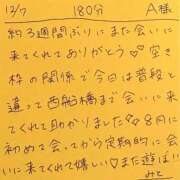 12/7 180分 A様
約3週間ぶりにまた会いに
来てくれてありがとう♡♡空き
枠の関係で今日は普段と
違って西船橋まで会いに来
てくれて助かりました♡♡8月に
初めて会ってから定期的に会
いに来てくれて嬉しい♡また遊ぼ!!
みと